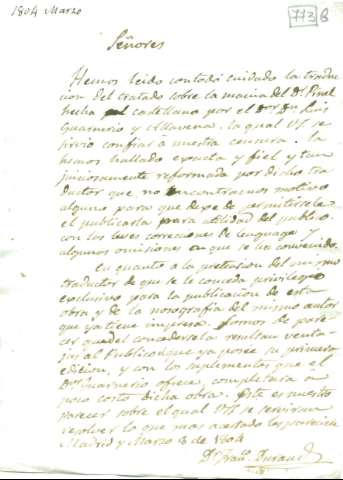 1804 Marzo
113 B
Señores
Hemos leido con todo cuidado la traduc
cion del tratado sobre la mania del Dr. Pinel
hecha al castellano por el Dor. Dn. Luis
Guarnerio y Allavena, la qual VS. se
sirvio confiar a nuestra censura. La
hemos hallado exacta y fiel y tan
juiciosamente reformada por dicho tra
ductor que no encontramos motivo
alguno para que dexe de permitirsele
el publicarla para utilidad del publico
con las leves correciones de lenguage y
algunas omisiones en que se ha convenido.
En quanto a la pretension del mismo
traductor de que se le conceda privilegio
exclusivo para la publicacion de esta
obra y de la nosografia del mismo autor
que ya tiene impresa. Somos de pare
cer que del concederselo resultan venta-
jas al Publico que ya posee su primera
edicion, y con los suplementos que el
Dr. Guarnerio ofrece, completara a
poco costo dicha obra. Este es nuestro
parecer sobre el qual VS. se serviran
resolver lo que mas acertado les pareciere
Madrid y Marzo 3 de 1804
Dr. Franco. Durand